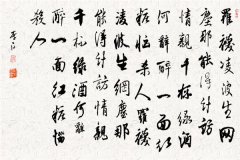 羅襪凌波生网
塵那能得計訪
情親千杯綠酒
何辭醉一面紅
粧惱殺人羅襪
凌波生網塵那
能得計訪情親
千杯綠酒何辭
醉一面紅粧惱
殺人